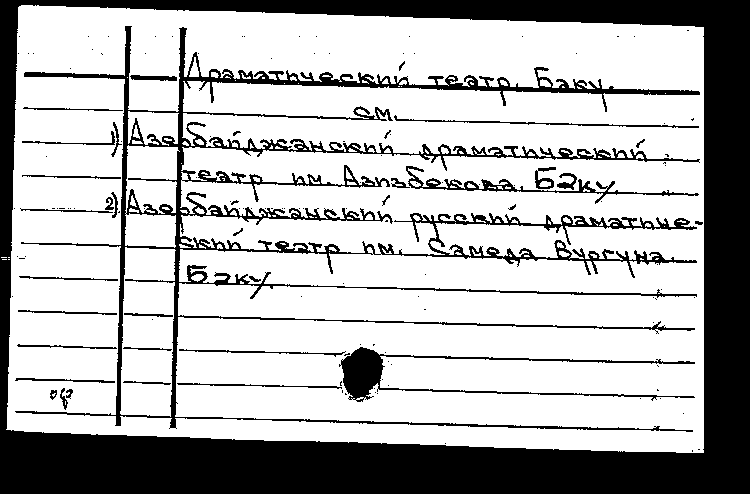 Драматический театр. Баку.
см.
1) Азербайджанский драматический
театр им. Азизбекова. Баку.
2) Азербайджанский русский драматиче-
ский театр им. Самеда Вургуна.
Баку.